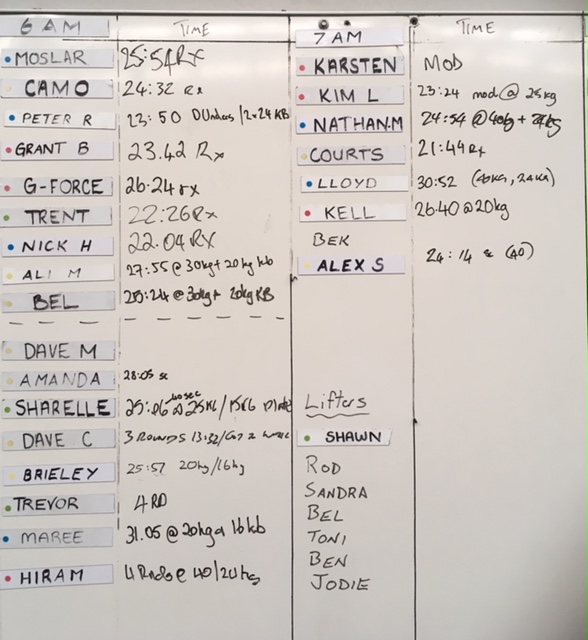 6AM TIME
MOSLAR 25:54 RX
CAMO 24:32 Rx
PETER R 23:50 DUnders/2x24KB
GRANT B 23.42 Rx
G-FORCE 26.24 rx
TRENT 22:26 Rx
NICK H 22.04 RX
ALI M 27:55 @ 30kg + 20kg kb
BEL 25:24 @ 30kg + 20kg KB
DAVE M
AMANDA 28:05 sc
SHARELLE 25:06 @ 25KG/15KG Plate
DAVE C 3 ROUNDS 13:32/
BRIELEY 25:57 20kg/16kg
TREVOR 4 RD
MAREE 31.05 @ 20kg 16kb
HIRAM 4 Rnds @ 40/24kg
7AM TIME
KARSTEN MOD
KIM L 23:24 mod @ 25kg
NATHAN.M 24:54 @ 40kg +
COURTS 21:44 Rx
LLOYD 30:52 (40KG, 24KG)
KELL 26.40 @ 20kg
BEK
ALEX S 24:14 (40)
Lifters
SHAWN
ROD
SANDRA
BEL
TONI
BEN
JODIE